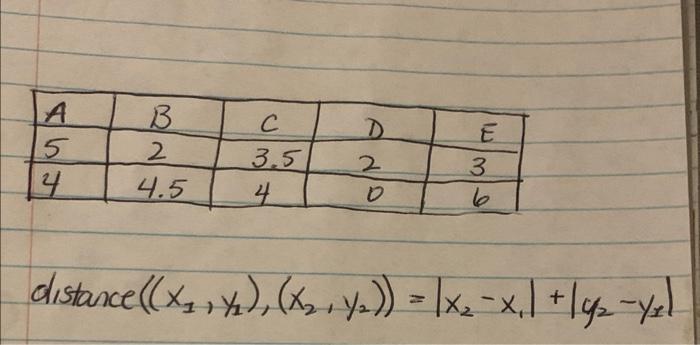 A B C D E
5 2 3.5 2 3
4 4.5 4 0 6
distance((x₁, y₁), (x₂, y₂)) = |x₂ - x₁| + |y₂ - y₁|